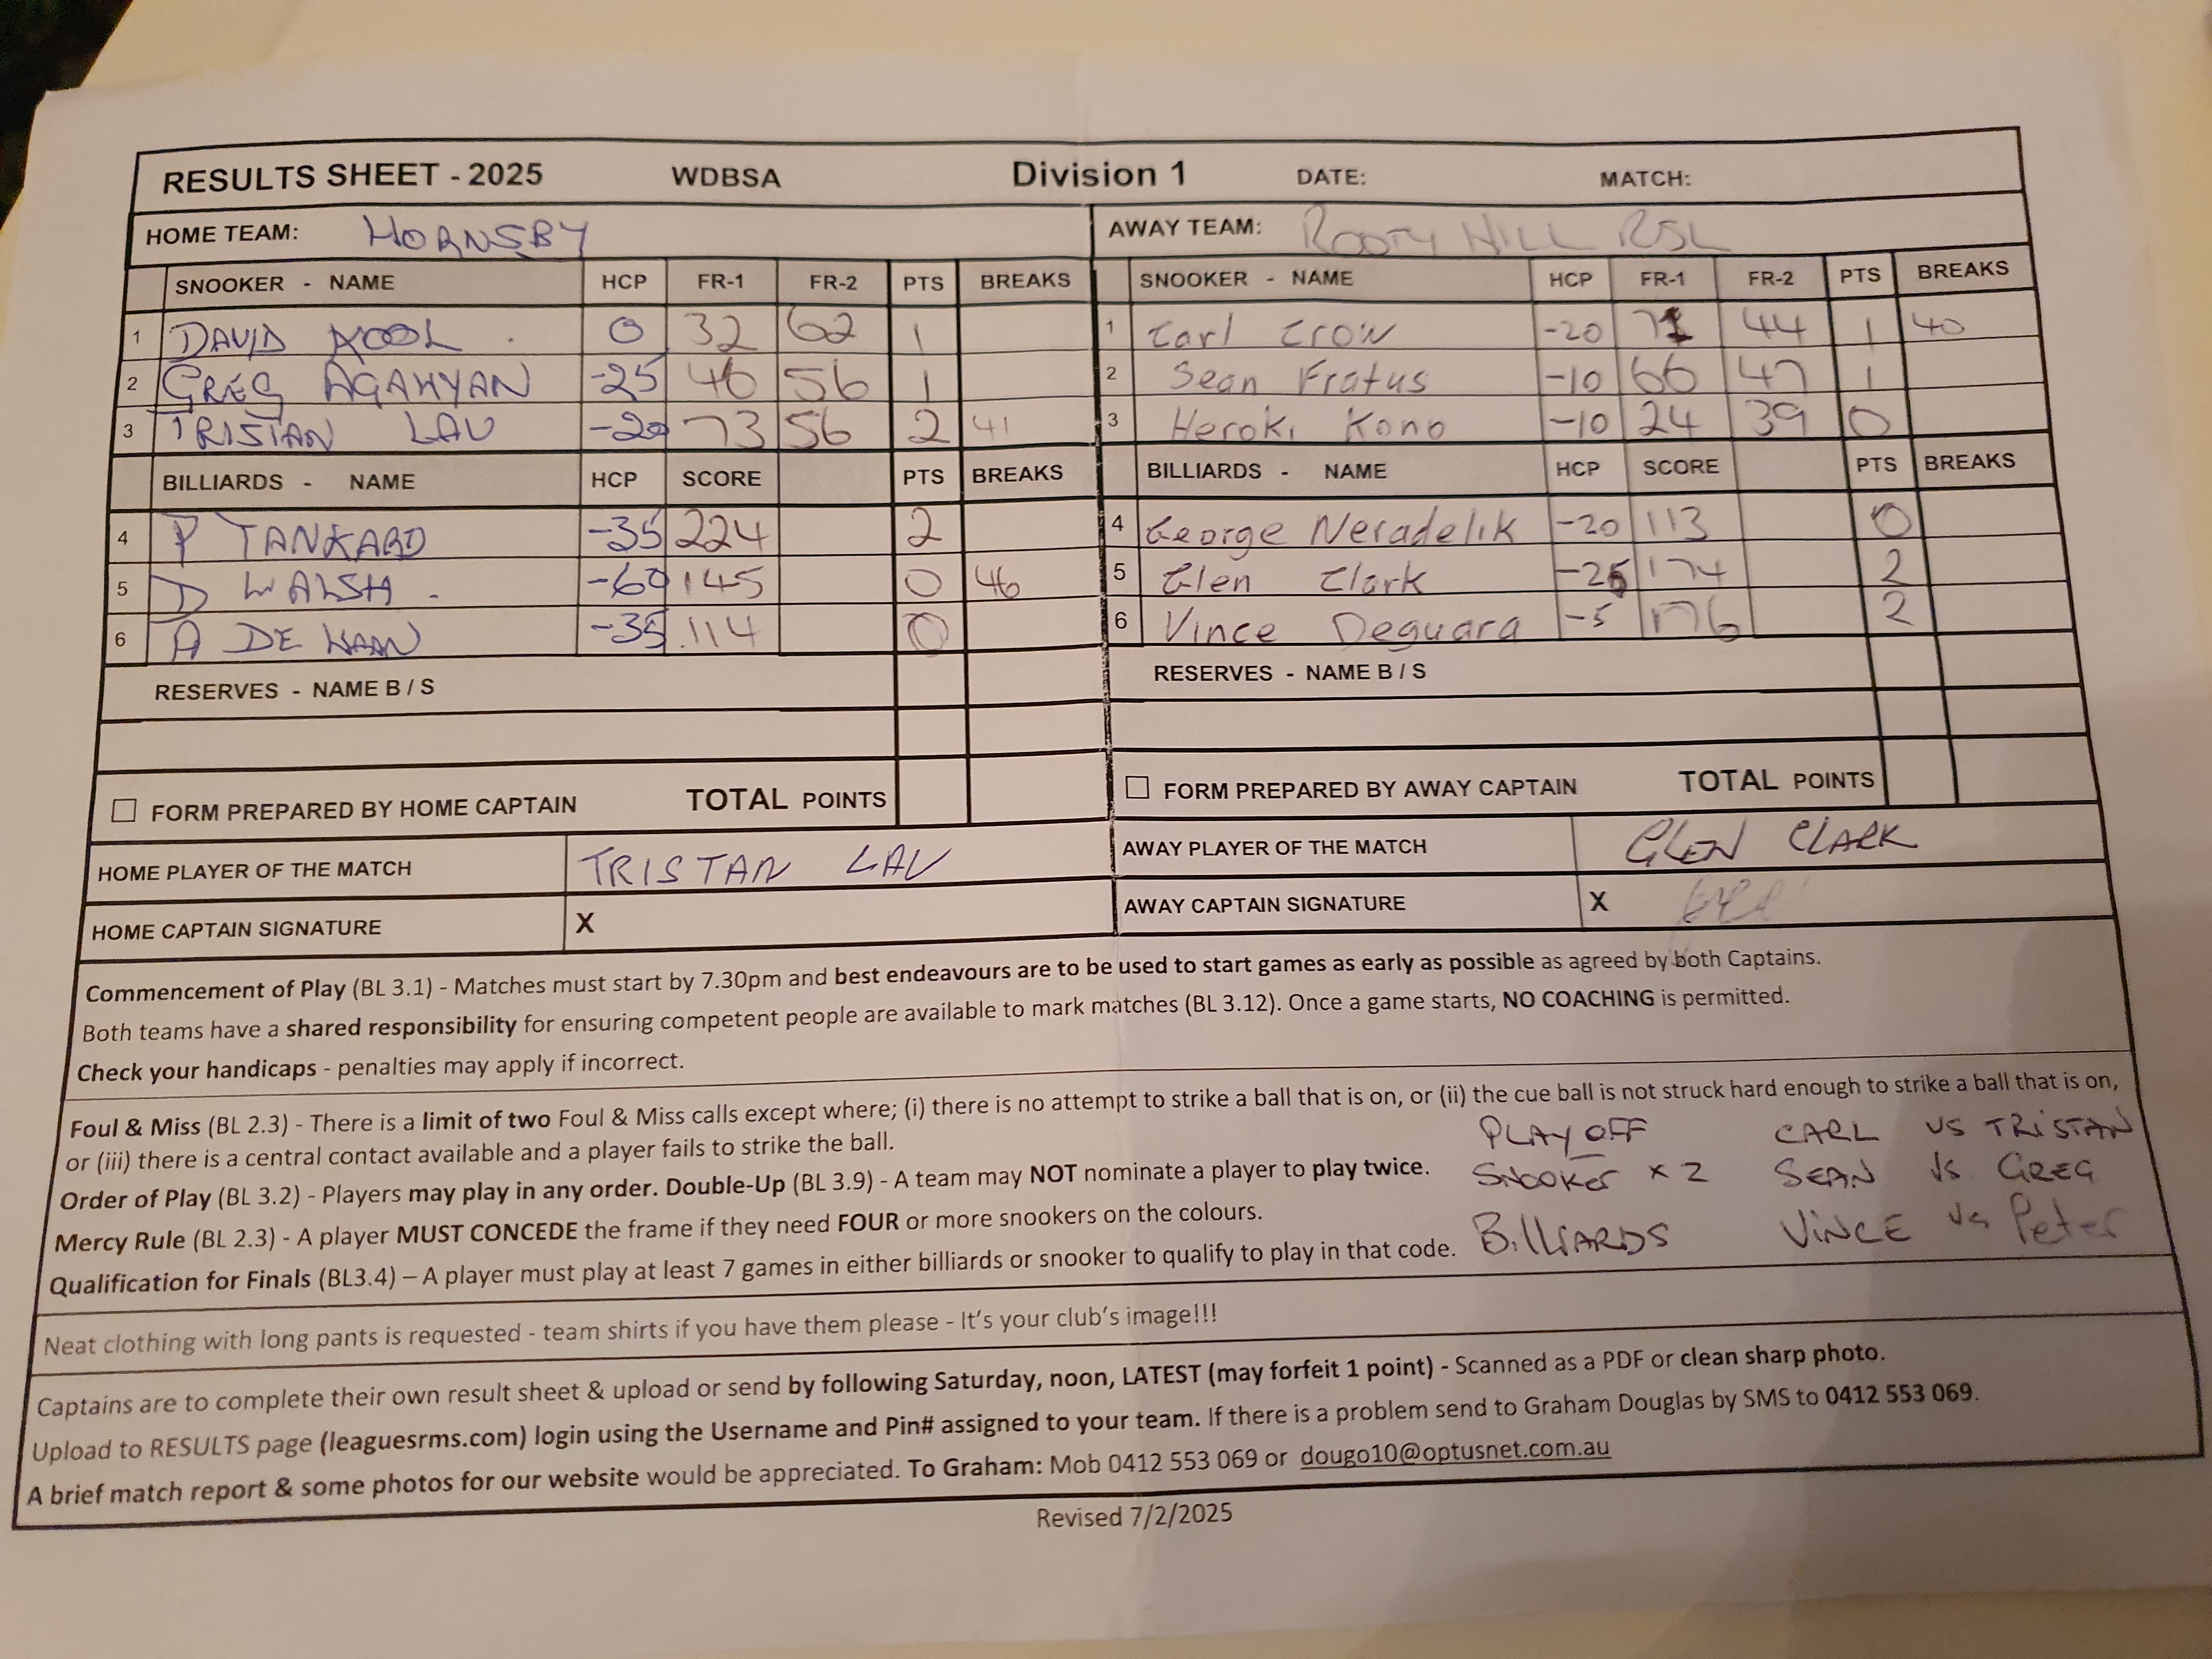 RESULTS SHEET - 2025 WDBSA Division 1 DATE: MATCH:
HOME TEAM: HORNSBY AWAY TEAM: ROOTY HILL RSL
SNOOKER - NAME HCP FR-1 FR-2 PTS BREAKS SNOOKER - NAME HCP FR-1 FR-2 PTS BREAKS
1 DAVID KOOL 0 32 62 1 1 Carl Crow -20 71 44 1 40
2 GREG AGAHYAN -25 46 56 1 2 Sean Fratus -10 66 47 1
3 TRISTAN LAU -20 73 56 2 41 3 Heroki Kono -10 24 39 0
BILLIARDS - NAME HCP SCORE PTS BREAKS BILLIARDS - NAME HCP SCORE PTS BREAKS
4 P TANKARD -35 224 2 4 George Neradelik -20 113 0
5 D WALSH -60 145 0 46 5 Glen Clark -25 174 2
6 A DE HAAN -35 114 0 6 Vince Deguara -5 176 2
RESERVES - NAME B / S RESERVES - NAME B / S
FORM PREPARED BY HOME CAPTAIN TOTAL POINTS FORM PREPARED BY AWAY CAPTAIN TOTAL POINTS
HOME PLAYER OF THE MATCH TRISTAN LAU AWAY PLAYER OF THE MATCH GLEN CLARK
HOME CAPTAIN SIGNATURE X AWAY CAPTAIN SIGNATURE X
Commencement of Play (BL 3.1) - Matches must start by 7.30pm and best endeavours are to be used to start games as early as possible as agreed by both Captains.
Both teams have a shared responsibility for ensuring competent people are available to mark matches (BL 3.12). Once a game starts, NO COACHING is permitted.
Check your handicaps - penalties may apply if incorrect.
Foul & Miss (BL 2.3) - There is a limit of two Foul & Miss calls except where; (i) there is no attempt to strike a ball that is on, or (ii) the cue ball is not struck hard enough to strike a ball that is on,
or (iii) there is a central contact available and a player fails to strike the ball. PLAY OFF CARL VS TRISTAN
Order of Play (BL 3.2) - Players may play in any order. Double-Up (BL 3.9) - A team may NOT nominate a player to play twice. Snooker x 2 SEAN Vs GREG
Mercy Rule (BL 2.3) - A player MUST CONCEDE the frame if they need FOUR or more snookers on the colours.
Qualification for Finals (BL3.4) – A player must play at least 7 games in either billiards or snooker to qualify to play in that code. BILLIARDS VINCE Vs Peter
Neat clothing with long pants is requested - team shirts if you have them please - It's your club's image!!!
Captains are to complete their own result sheet & upload or send by following Saturday, noon, LATEST (may forfeit 1 point) - Scanned as a PDF or clean sharp photo.
Upload to RESULTS page (leaguesrms.com) login using the Username and Pin# assigned to your team. If there is a problem send to Graham Douglas by SMS to 0412 553 069.
A brief match report & some photos for our website would be appreciated. To Graham: Mob 0412 553 069 or dougo10@optusnet.com.au
Revised 7/2/2025